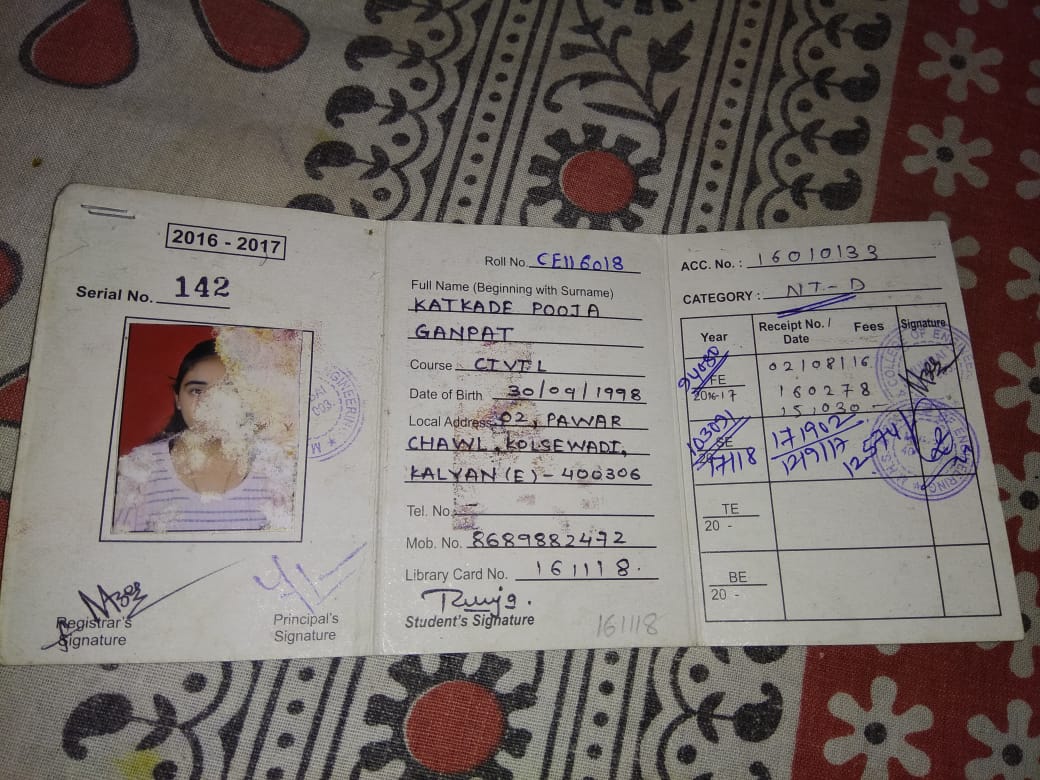 2016 - 2017
Serial No. 142
Registrar's
Signature
Principal's
Signature
Roll No. CE116018
Full Name (Beginning with Surname)
KATKADE POOJA
GANPAT
Course CIVIL
Date of Birth 30/09/1998
Local Address 02, PAWAR
CHAWL, KOLSEWADI,
KALYAN (E) - 400306
Tel. No.
Mob. No. 8689882472
Library Card No. 161118.
Student's Signature
161118
ACC. No. : 16010133
CATEGORY : NT - D
Year Receipt No. / Date Fees Signature
FE
2016-17
02108116
160278
151030
SE
17/18
171902
12/9/17
12574
TE
20 -
BE
20 -